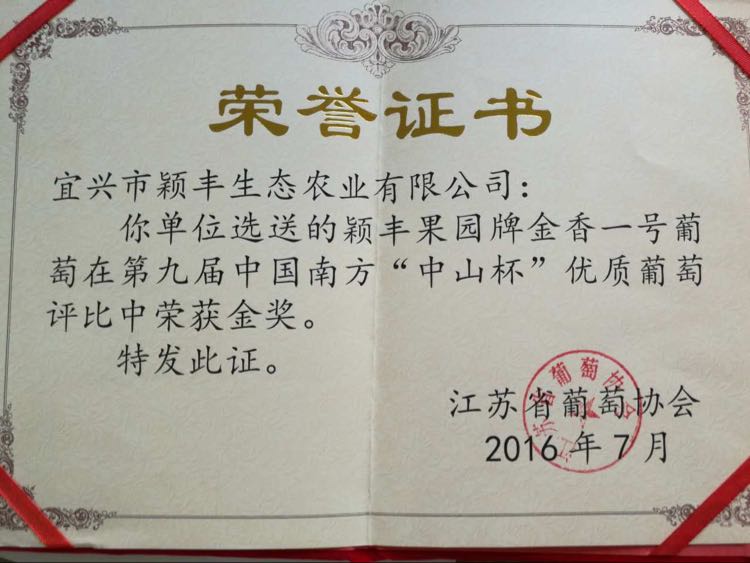 荣誉证书
宜兴市颖丰生态农业有限公司：
你单位选送的颖丰果园牌金香一号葡
萄在第九届中国南方“中山杯”优质葡萄
评比中荣获金奖。
特发此证。
江苏省葡萄协会
2016年7月
江苏省葡萄协会